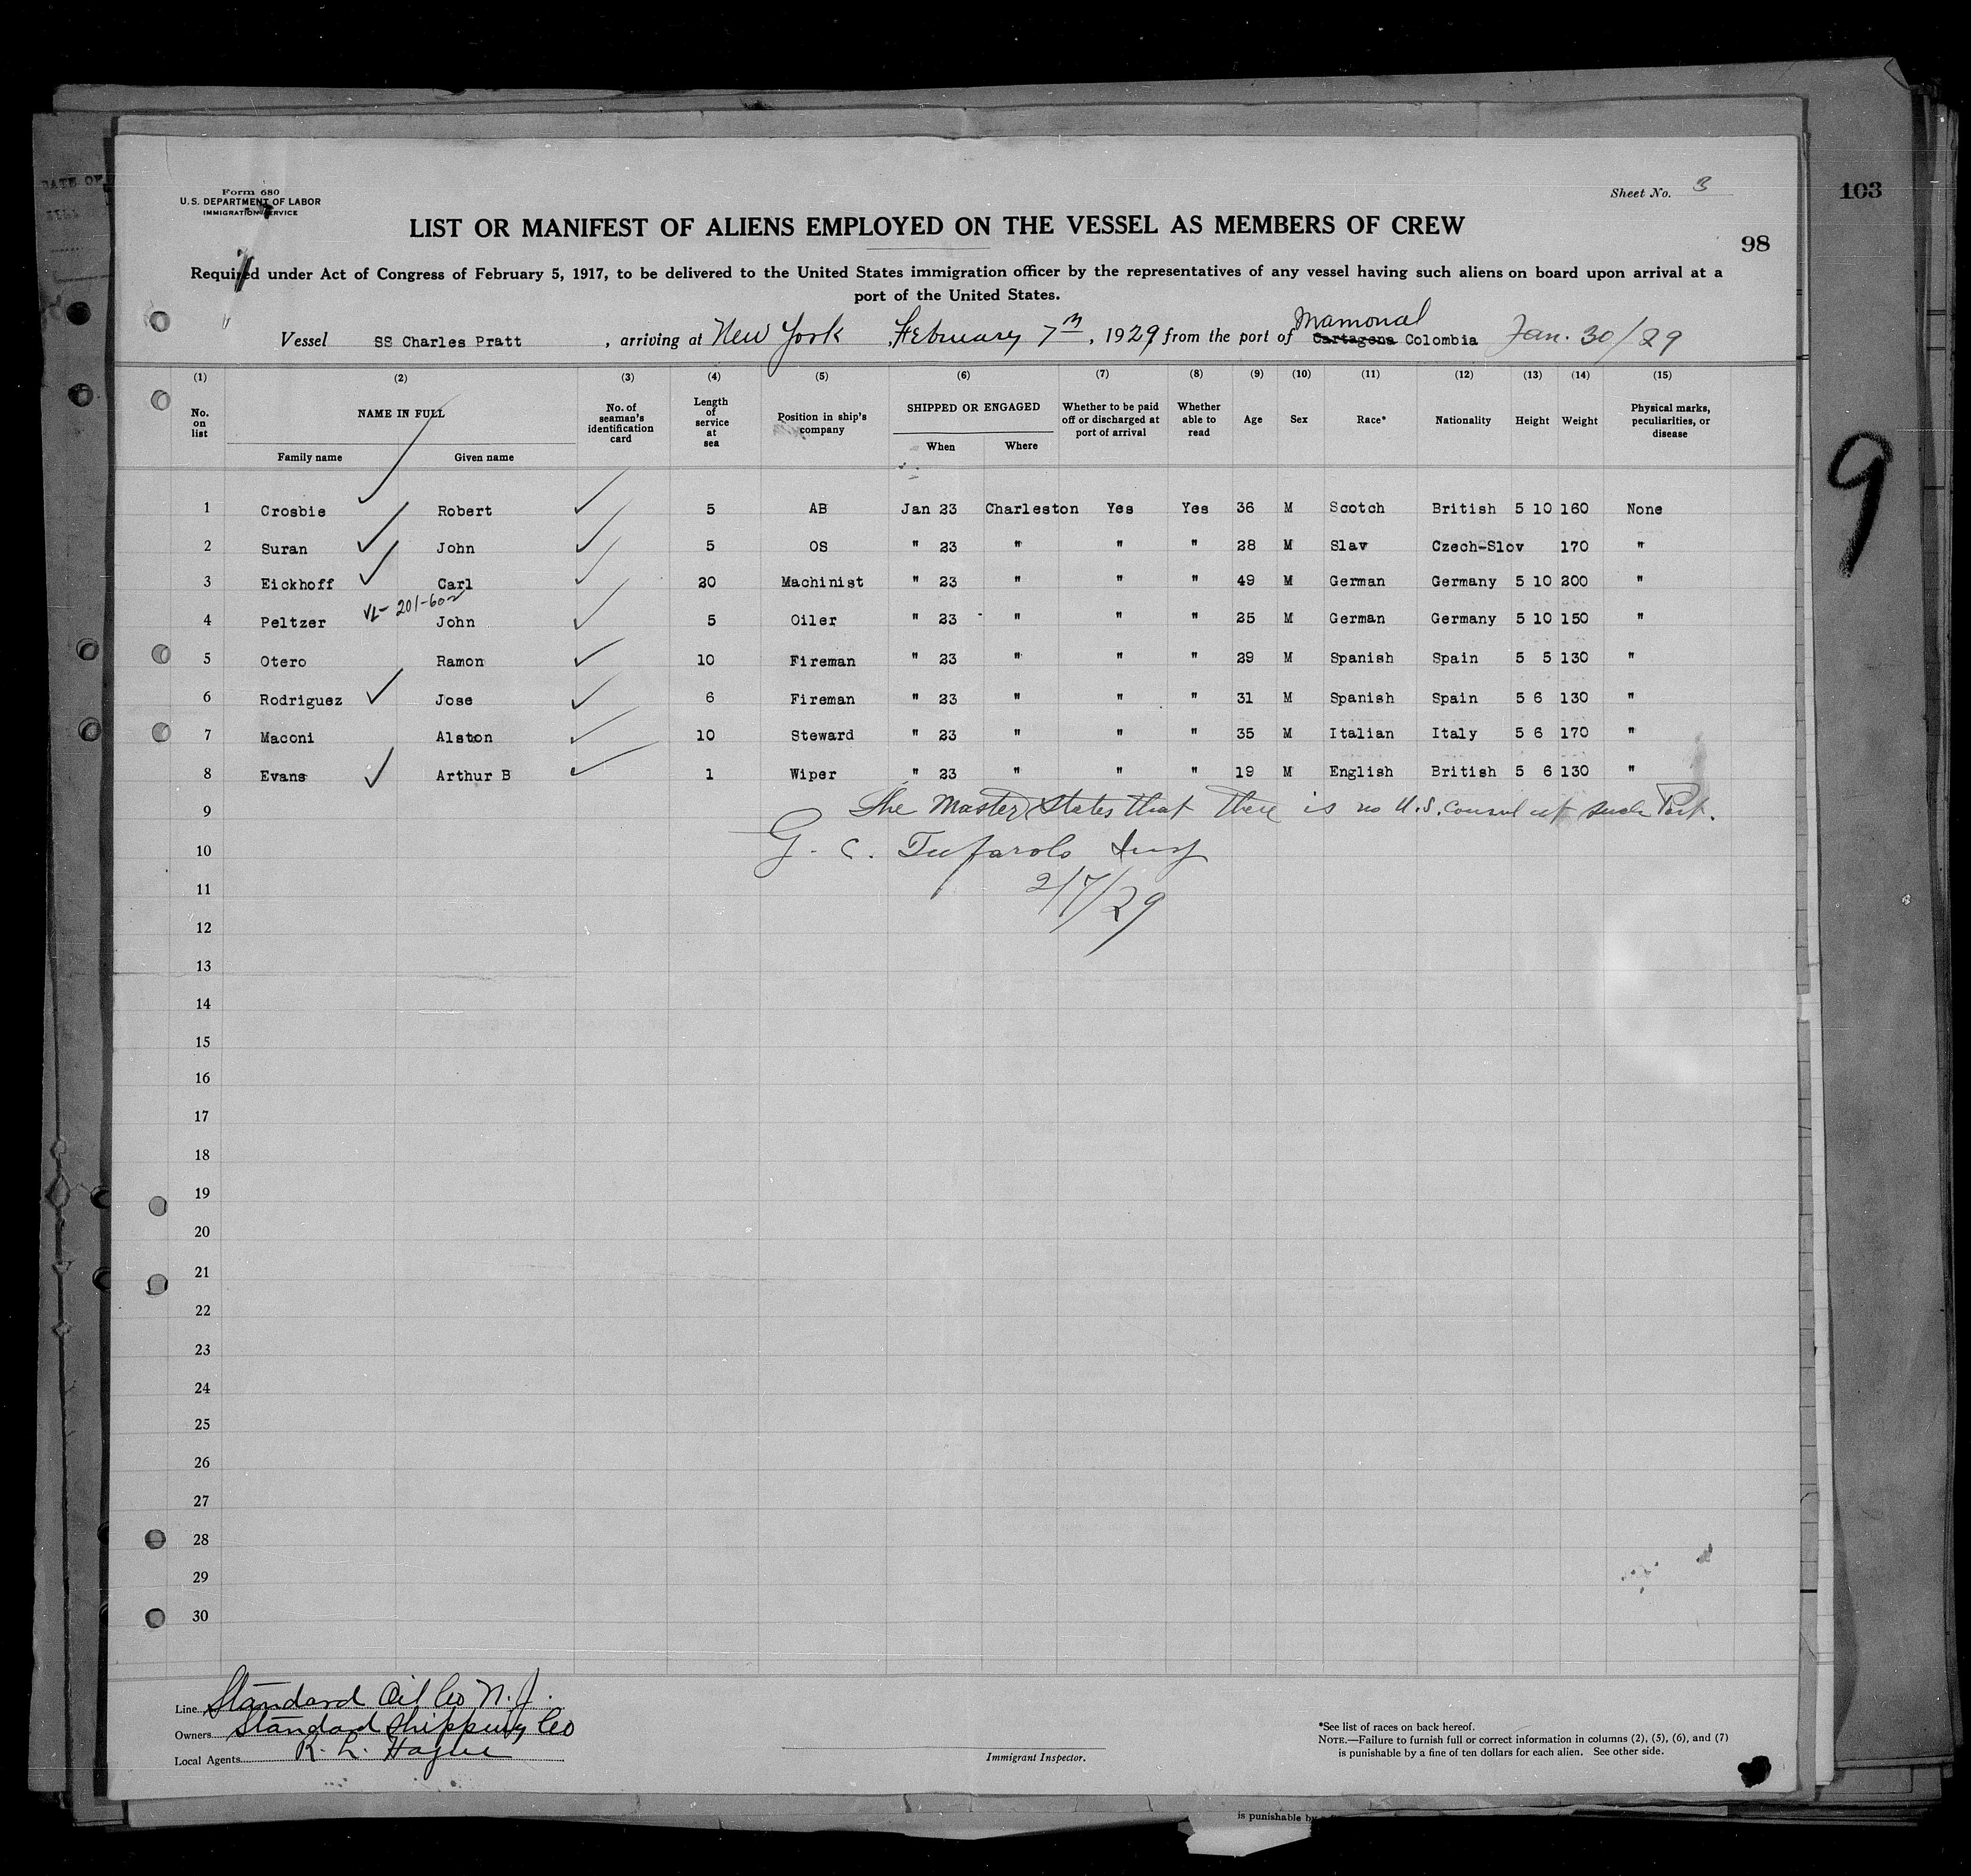 Form 680
U.S. DEPARTMENT OF LABOR
IMMIGRATION SERVICE
Sheet No. 3
103
LIST OR MANIFEST OF ALIENS EMPLOYED ON THE VESSEL AS MEMBERS OF CREW
98
Required under Act of Congress of February 5, 1917, to be delivered to the United States immigration officer by the representatives of any vessel having such aliens on board upon arrival at a
port of the United States.
Mamonal
Vessel SS Charles Pratt , arriving at New York , February 7th , 1929 from the port of Cartagena Colombia Jan. 30/29
(1) (2) (3) (4) (5) (6) (7) (8) (9) (10) (11) (12) (13) (14) (15)
No. on list NAME IN FULL Family name Given name No. of seaman's identification card Length of service at sea Position in ship's company SHIPPED OR ENGAGED When Where Whether to be paid off or discharged at port of arrival Whether able to read Age Sex Race* Nationality Height Weight Physical marks, peculiarities, or disease
9
1 Crosbie Robert 5 AB Jan 23 Charleston Yes Yes 36 M Scotch British 5 10 160 None
2 Suran John 5 OS " 23 " " " 28 M Slav Czech-Slov 170 "
3 Eickhoff Carl 20 Machinist " 23 " " " 49 M German Germany 5 10 200 "
201-602
4 Peltzer John 5 Oiler " 23 " " " 25 M German Germany 5 10 150 "
5 Otero Ramon 10 Fireman " 23 " " " 29 M Spanish Spain 5 5 130 "
6 Rodriguez Jose 6 Fireman " 23 " " " 31 M Spanish Spain 5 6 130 "
7 Maconi Alston 10 Steward " 23 " " " 35 M Italian Italy 5 6 170 "
8 Evans Arthur B 1 Wiper " 23 " " " 19 M English British 5 6 130 "
9 The Master States that there is no U.S. Consul at such Port.
10 G. C. Tufarolo Insp
11 2/7/29
12
13
14
15
16
17
18
19
20
21
22
23
24
25
26
27
28
29
30
Line Standard Oil Co N.J.
Owners Standard Shipping Co
Local Agents R. L. Hague
Immigrant Inspector.
*See list of races on back hereof.
NOTE.—Failure to furnish full or correct information in columns (2), (5), (6), and (7)
is punishable by a fine of ten dollars for each alien. See other side.
is punishable by